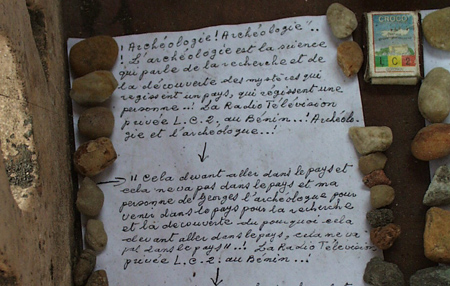 ! Archéologie! Archéologie"..
! L'archéologie est la science
qui parle de la recherche et de
la découverte des mystères qui
régissent un pays, qui régissent une
personne..! La Radio Télévision
privée L.C.2. au Bénin..! Archéolo-
gie et l'archéologue..!
"Cela devant aller dans le pays et
cela ne va pas dans le pays et ma
personne de Georges l'archéologue pour
venir dans le pays pour la recherche
et la découverte du pourquoi cela
devant aller dans le pays, cela ne va
pas dans le pays"..! La Radio Télévision
privée L.C.2. au Bénin..!
LC2